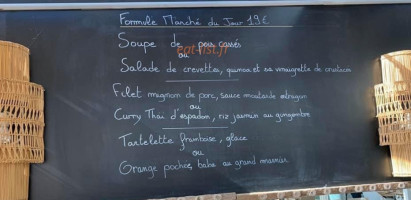 Formule Marché du Jour 19€
Soupe de pois cassés
eat-list.fr
ou
Salade de crevettes, quinoa et sa vinaigrette de crustacés
Filet mignon de porc, sauce moutarde estragon
ou
Curry Thaï d'espadon, riz jasmin au gingembre
Tartelette framboise, glace
ou
Orange pochée, baba au grand marnier